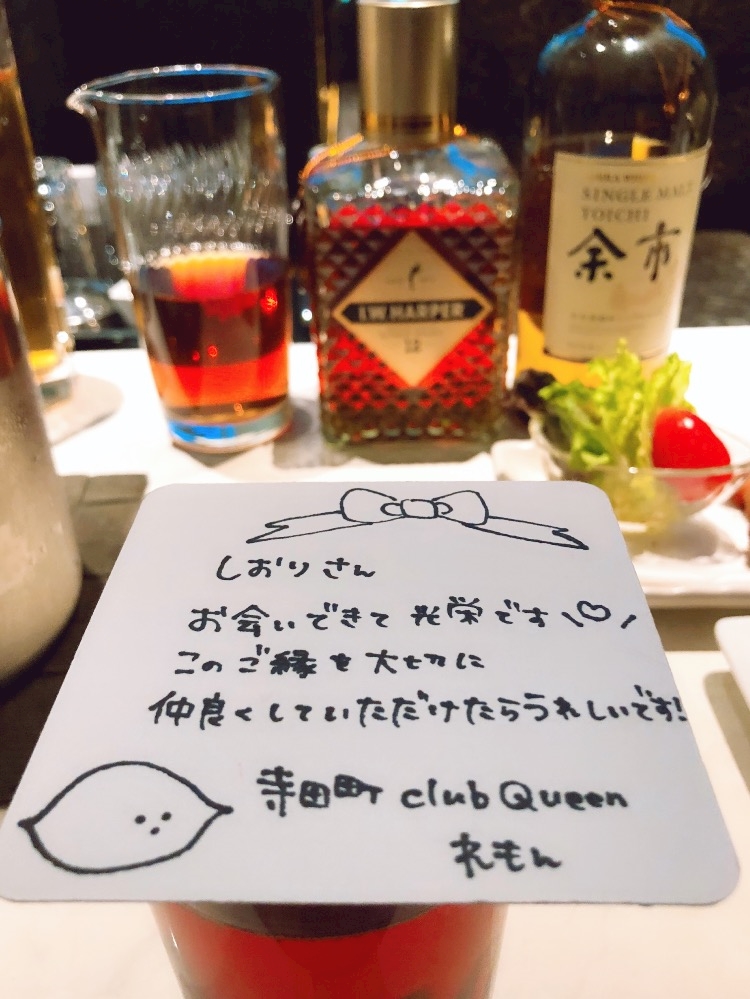 SINGLE MALT
YOICHI
余市
I.W.HARPER
12
しおりさん
お会いできて光栄です\♡/
このご縁を大切に
仲良くしていただけたらうれしいです!
寺田町 club Queen
れもん